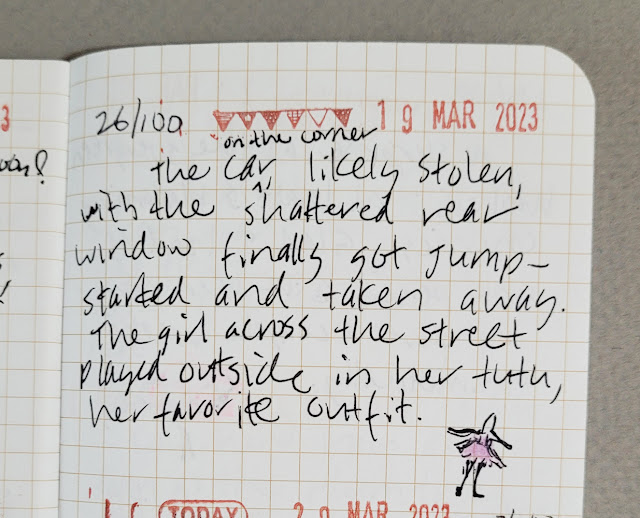 3
26/100 19 MAR 2023
on the corner
the car, likely stolen,
with the shattered rear
window finally got jump-
started and taken away.
The girl across the street
played outside in her tutu,
her favorite outfit.
TODAY